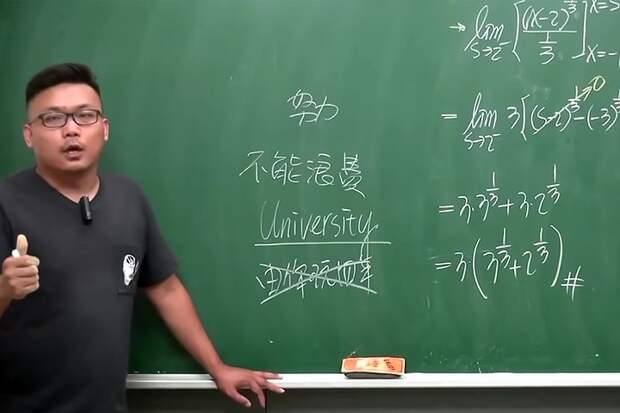 努力
不能浪費
University
由你玩四年
→ lim s→2⁻ [(x-2)^{1/3} / (1/3)]
= lim s→2⁻ 3[(s-2)^{1/3} - (-3)^{1/3}
0
= 3·3^{1/3} + 3·2^{1/3}
= 3·(3^{1/3} + 2^{1/3}) #